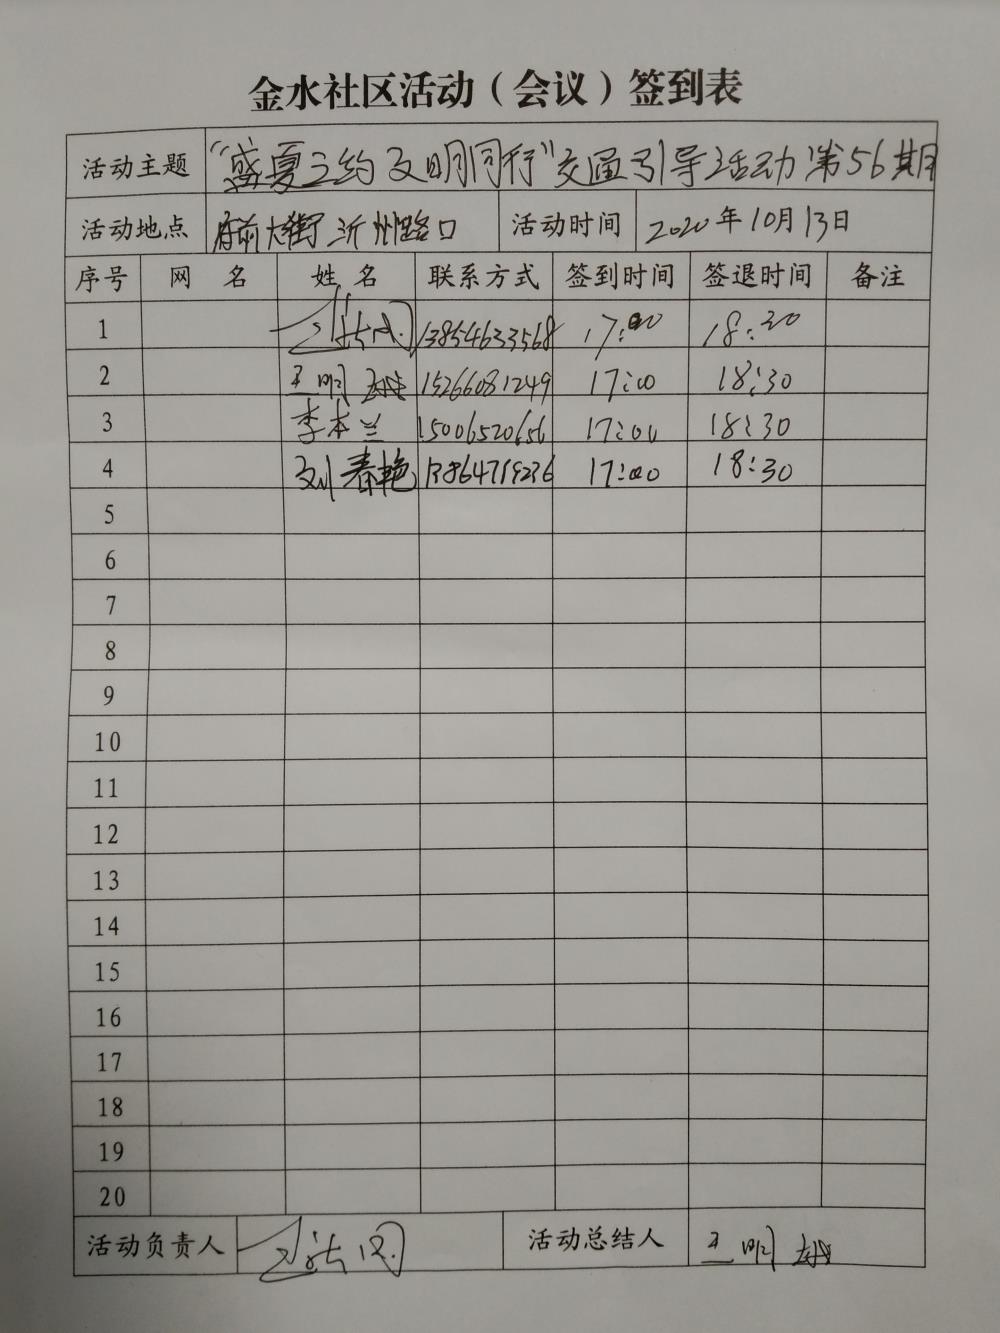 金水社区活动（会议）签到表
活动主题 “盛夏之约 文明同行”交通引导活动第56期
活动地点 府前大街沂州路口 活动时间 2020年10月13日
序号 网 名 姓 名 联系方式 签到时间 签退时间 备注
1 13854633568 17:00 18:30
2 王明 15266081249 17:00 18:30
3 李本兰 15006520656 17:00 18:30
4 刘春艳 13864719236 17:00 18:30
5
6
7
8
9
10
11
12
13
14
15
16
17
18
19
20
活动负责人 活动总结人 王明